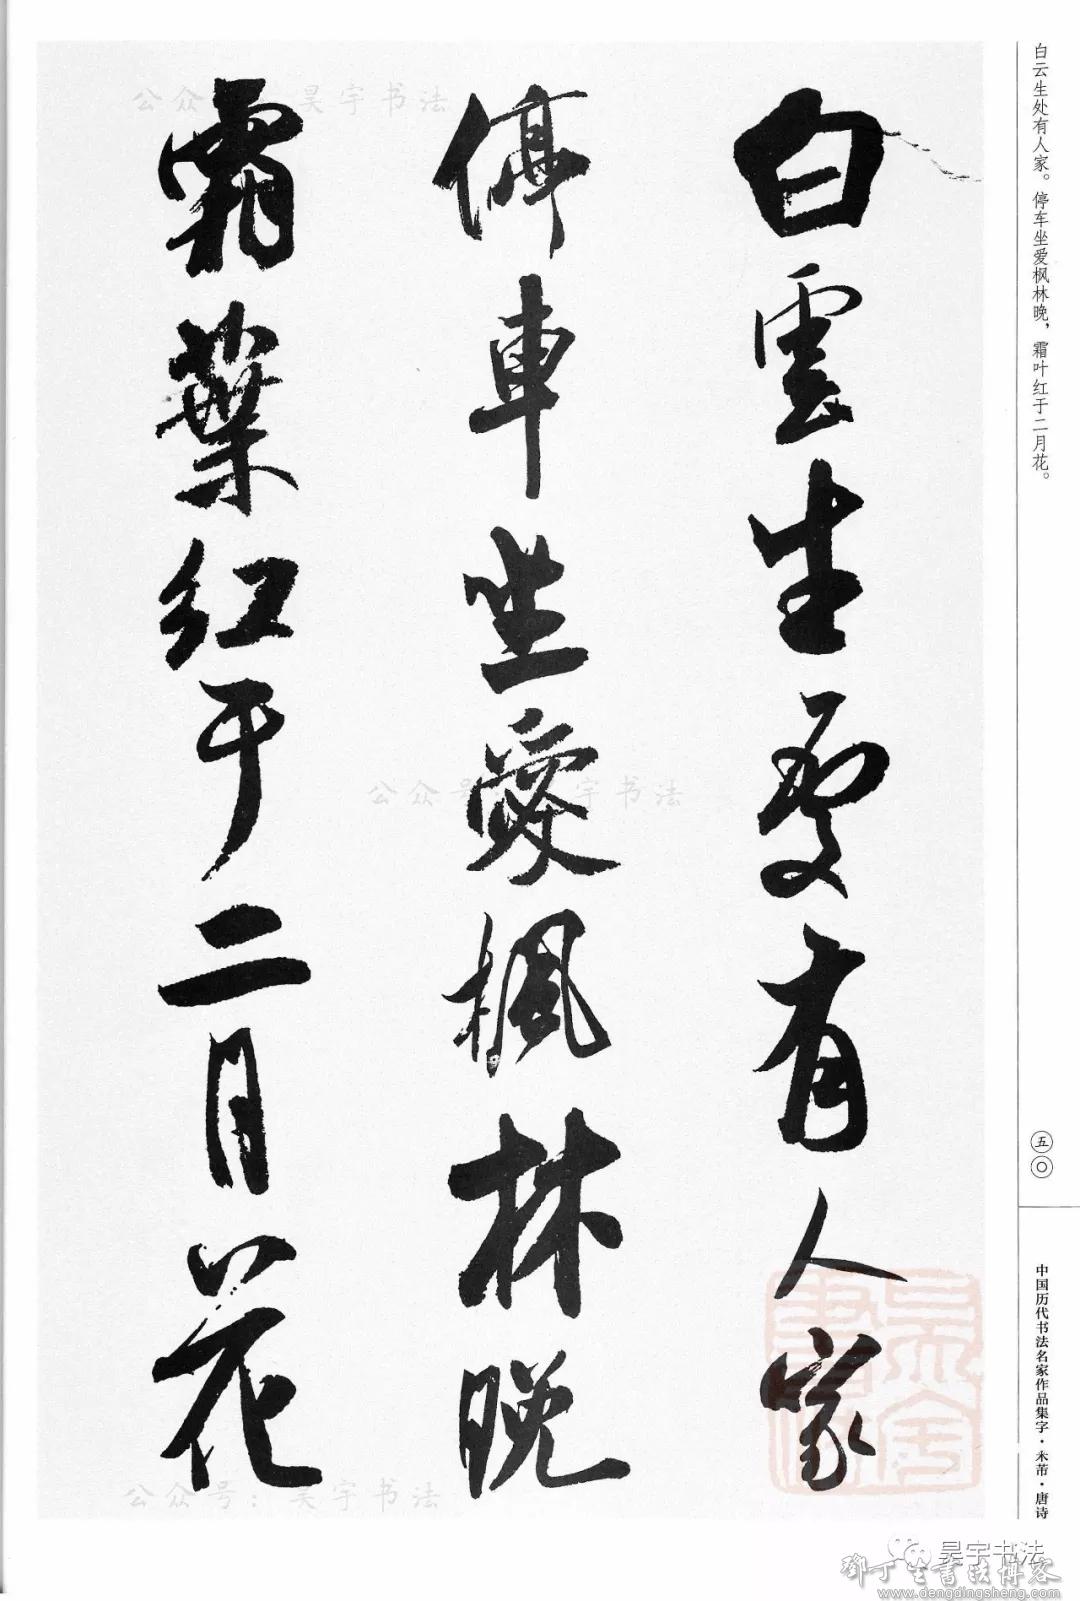 白雲生處有人家
停車坐愛楓林晚
霜葉红于二月花
白云生处有人家。停车坐爱枫林晚，霜叶红于二月花。
五〇
中国历代书法名家作品集字·米芾·唐诗
公众号：昊宇书法
公众号：昊宇书法
公众号：昊宇书法
昊宇书法
鄧丁生書法博客
www.dengdingsheng.com